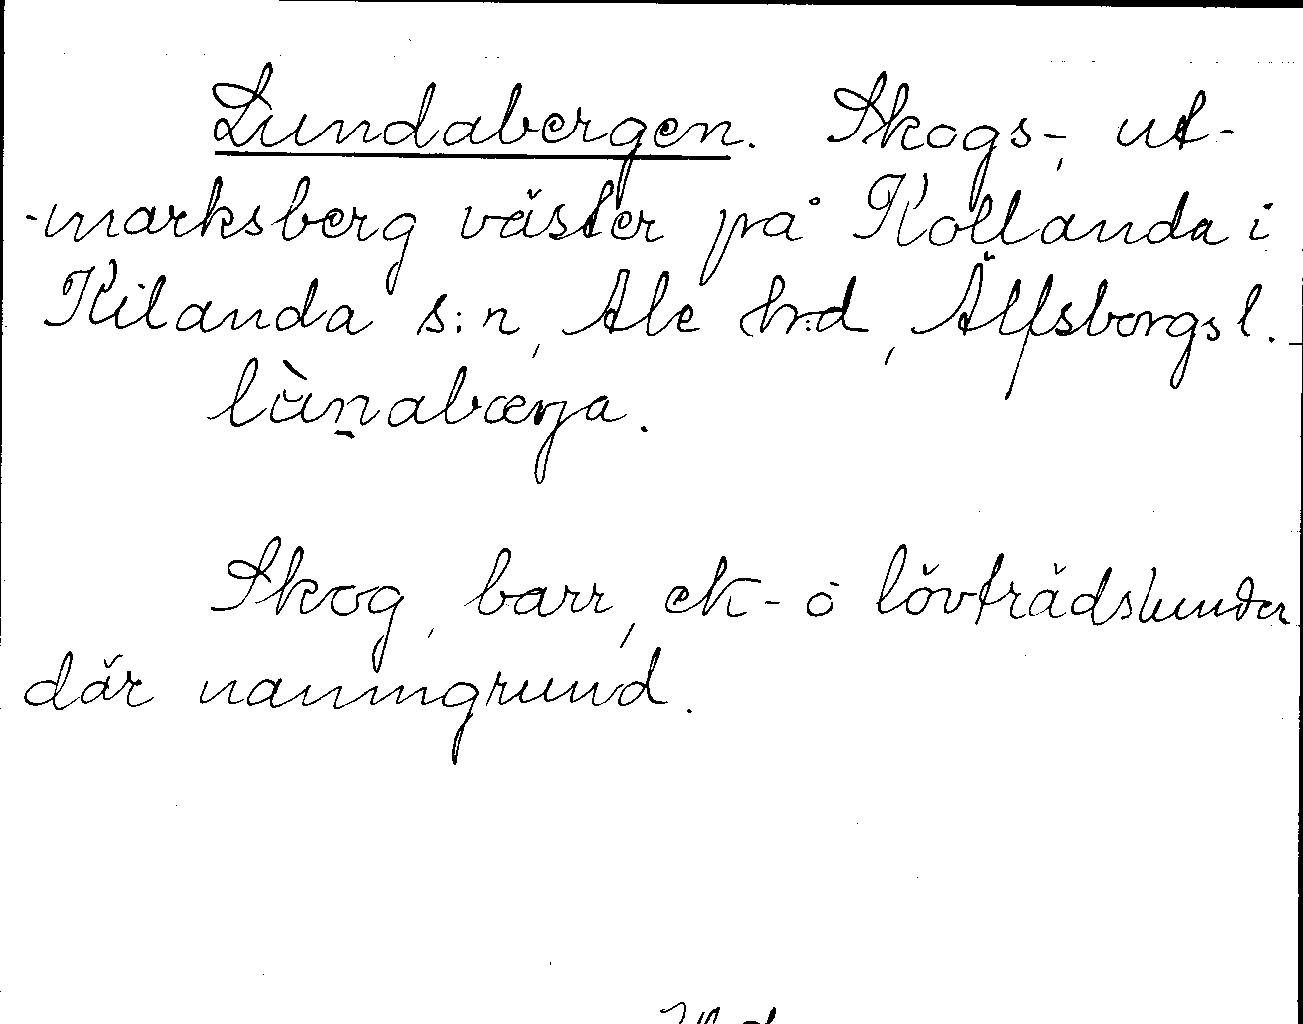 Lundabergen. Skogs-, ut-
-marksberg väster på Kollanda i
Kilanda s:n, Ale hrd, Älfsborgs l.
lùn̠abærja.
Skog, barr, ek- o lövträdslunder
där namngrund.